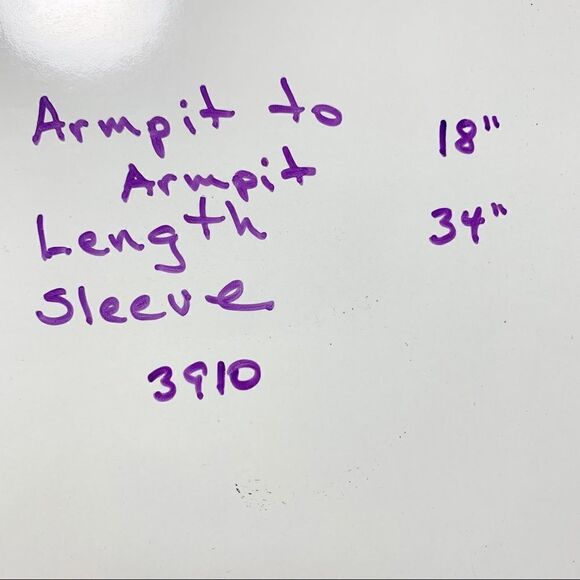 Armpit to
Armpit 18"
Length 34"
Sleeve
3910